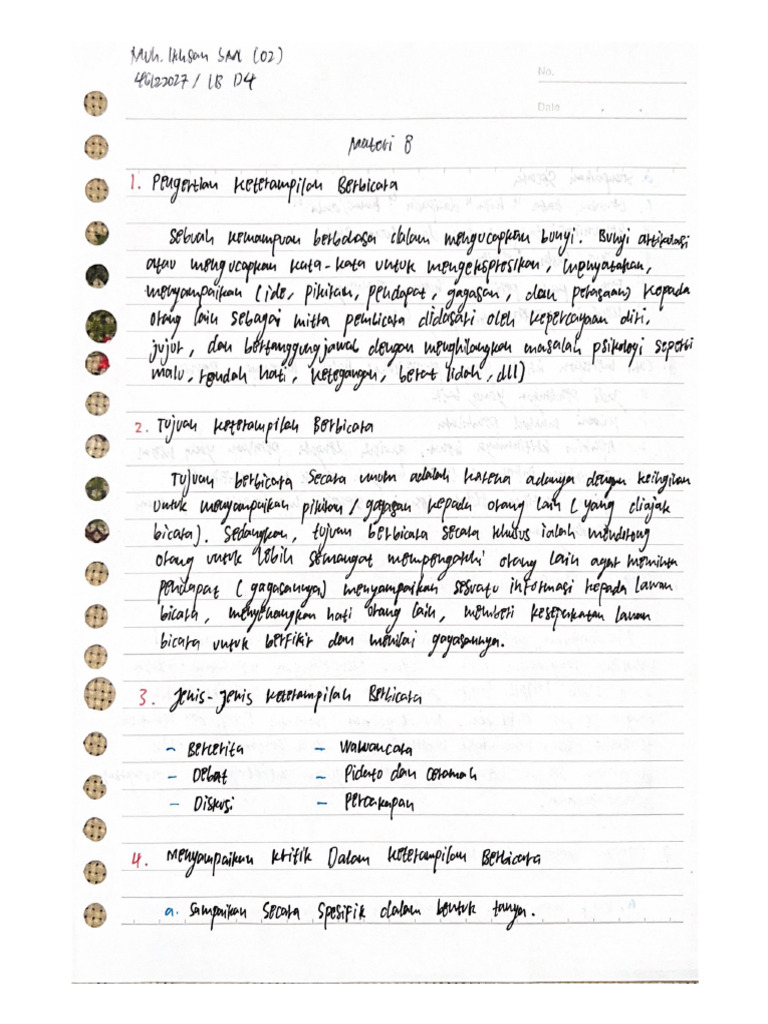 Muh. Ikhsan SNR (02)
46122027 / 1B D4
No.
Date . .
Materi 8
1. Pengertian Keterampilan Berbicara
Sebuah kemampuan berbahasa dalam mengucapkan bunyi. Bunyi artikulasi
atau mengucapkan kata-kata untuk mengekspresikan, menyatakan,
menyampaikan (ide, pikiran, pendapat, gagasan, dan perasaan) kepada
orang lain sebagai mitra pembicara didasari oleh kepercayaan diri,
jujur, dan bertanggung jawab dengan menghilangkan masalah psikologi seperti
malu, rendah hati, ketegangan, berat lidah, dll)
2. Tujuan Keterampilan Berbicara
Tujuan berbicara secara umum adalah karena adanya dengan keinginan
untuk menyampaikan pikiran / gagasan kepada orang lain (yang diajak
bicara). Sedangkan, tujuan berbicara secara khusus ialah mendorong
orang untuk lebih semangat mempengaruhi orang lain agar meminta
pendapat (gagasannya) menyampaikan sesuatu informasi kepada lawan
bicara, menyenangkan hati orang lain, memberi kesepakatan lawan
bicara untuk berfikir dan menilai gagasannya.
3. Jenis-Jenis Keterampilan Berbicara
- Bercerita - Wawancara
- Debat - Pidato dan Ceramah
- Diskusi - Percakapan
4. Menyampaikan Kritik Dalam Keterampilan Berbicara
a. Sampaikan secara spesifik dalam bentuk tanya.